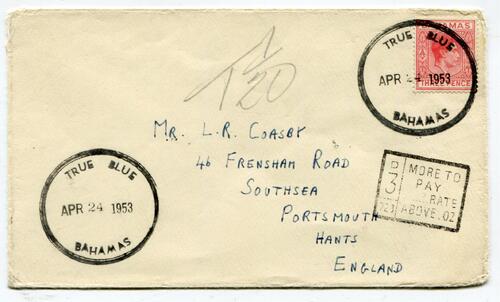 BAHAMAS
THREE PENCE
TRUE BLUE
APR 24 1953
BAHAMAS
T 1/20
MR. L.R. COASBY
46 FRENSHAM ROAD
SOUTHSEA
PORTSMOUTH
HANTS
ENGLAND
D
3
723
MORE TO
PAY
RATE
ABOVE .OZ
TRUE BLUE
APR 24 1953
BAHAMAS